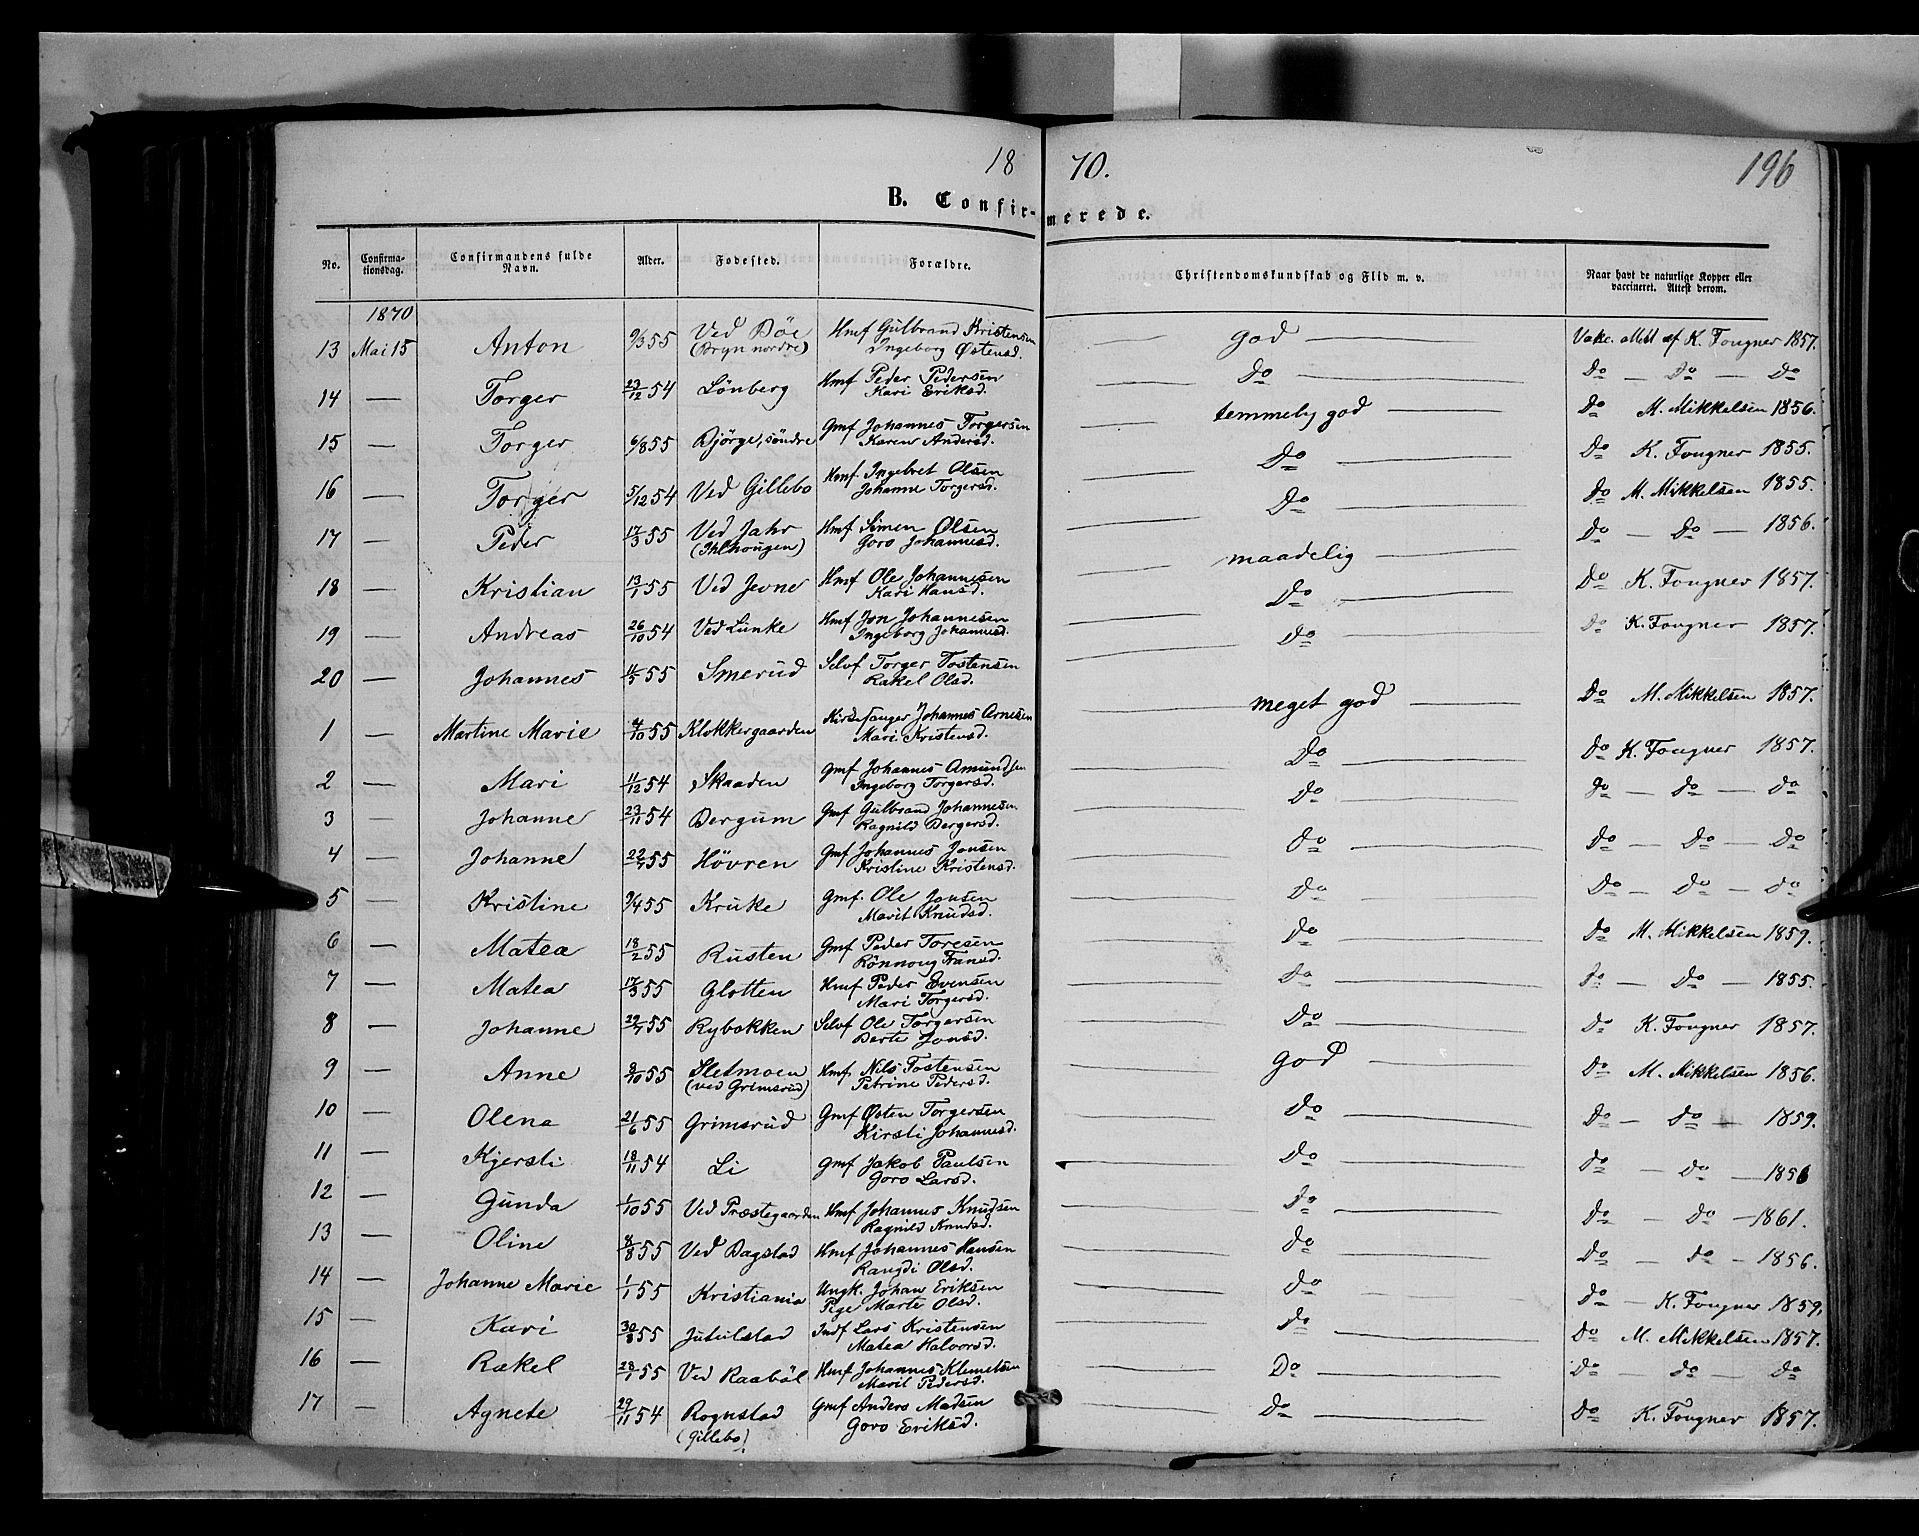 18 70.
196
B. Confirmerede.
No. Confirmationsdag. Confirmandens fulde Navn. Alder. Fødested. Forældre. Christendomskundskab og Flid m. v. Naar havt de naturlige Kopper eller vaccineret. Attest derom.
1870
13 Mai 15 Anton 9/3 55 Ved Böe (Bryn nordre) Hmf Gulbrand Kristensen Ingeborg Østensd. — god — Vakc. Attest af K. Fougner 1857.
14 — Torger 23/12 54 Lönberg Hmf Peder Pedersen Kari Eriksd. — Do — Do — Do — Do
15 — Torger 6/8 55 Björge, söndre Gmf Johannes Torgersen Karen Andersd. — temmelig god — Do M. Mikkelsen 1856.
16 — Torger 5/12 54 Ved Gillebo Hmf. Ingebret Olsen Johanne Torgersd. — Do — Do K. Fougner 1855.
17 — Peder 17/3 55 Ved Jahr (Ihlhougen) Hmf Simen Olsen Goro Johannesd. — Do — Do M. Mikkelsen 1855.
18 — Kristian 13/1 55 Ved Jevne Hmf Ole Johannesen Kari Hansd. — maadelig — Do — Do — 1856.
19 — Andreas 26/10 54 Ved Lunke Hmf Jon Johannesen Ingeborg Johannesd. — Do — Do K. Fougner 1857.
20 — Johannes 11/5 55 Smerud Selvf Torger Tostensen Rakel Olsd. — Do — Do K. Fougner 1857.
1 — Martine Marie 4/10 55 Klokkergaarden Kirkesanger Johannes Arnesen Mari Kristensd. — meget god — Do M. Mikkelsen 1857.
2 — Mari 11/12 54 Skaaden Gmf Johannes Amundsen Ingeborg Torgersd. — Do — Do K. Fougner 1857.
3 — Johanne 23/11 54 Bergum Gmf Gulbrand Johannesen Ragnild Bergersd. — Do — Do — Do — Do
4 — Johanne 22/7 55 Hövren Gmf Johannes Jonsen Kristine Kristensd. — Do — Do — Do — Do
5 — Kristine 9/4 55 Kruke Gmf. Ole Jonsen Marit Knudsd. — Do — Do — Do — Do
6 — Matea 18/2 55 Rusten Gmf Peder Toresen Rönnoug Fransd. — Do — Do M. Mikkelsen 1859.
7 — Matea 17/3 55 Glotten Hmf Peder Evensen Mari Torgersd. — Do — Do — Do — 1855.
8 — Johanne 29/7 55 Rybakken Selvf Ole Torgersen Berte Jonsd. — Do — Do K. Fougner 1857.
9 — Anne 8/10 55 Sletmoen (ved Grimsrud) Hmf. Nils Tostensen Petrine Pedersd. — god — Do M. Mikkelsen 1856.
10 — Olena 21/6 55 Grimsrud Gmf Østen Torgersen Kirsti Johannesd. — Do — Do — Do — 1859.
11 — Kjersti 18/11 54 Li Gmf Jakob Paulsen Goro Larsd. — Do — Do — Do — 1856
12 — Gunda 1/10 55 Ved Præstegaarden Hmf Johannes Knudsen Ragnild Knudsd. — Do — Do — Do — 1861.
13 — Oline 8/8 55 Ved Bagstad Hmf Johannes Hansen Rangdi Olsd. — Do — Do — Do — 1856.
14 — Johanne Marie 1/1 55 Kristiania Ungk. Johan Eriksen Pige Marte Olsd. — Do — Do — K. Fougner 1859.
15 — Kari 30/8 55 Jutulstad Indf Lars Kristensen Matea Halvorsd. — Do — Do M. Mikkelsen 1857.
16 — Rakel 28/1 55 Ved Raaböl Hmf Johannes Klemetsen Marit Pedersd. — Do — Do — Do — Do
17 — Agnete 29/11 54 Rognstad (Gillebo) Gmf Anders Madsen Goro Eriksd. — Do — Do K. Fougner 1857.